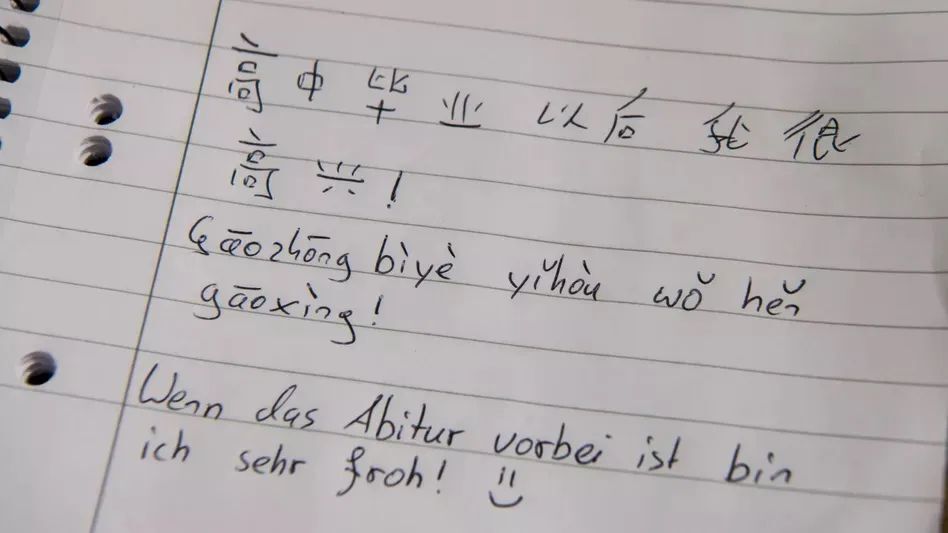 高中毕业以后我很
高兴!
Gāozhōng bìyè yǐhòu wǒ hěn
gāoxìng!
Wenn das Abitur vorbei ist bin
ich sehr froh! :)